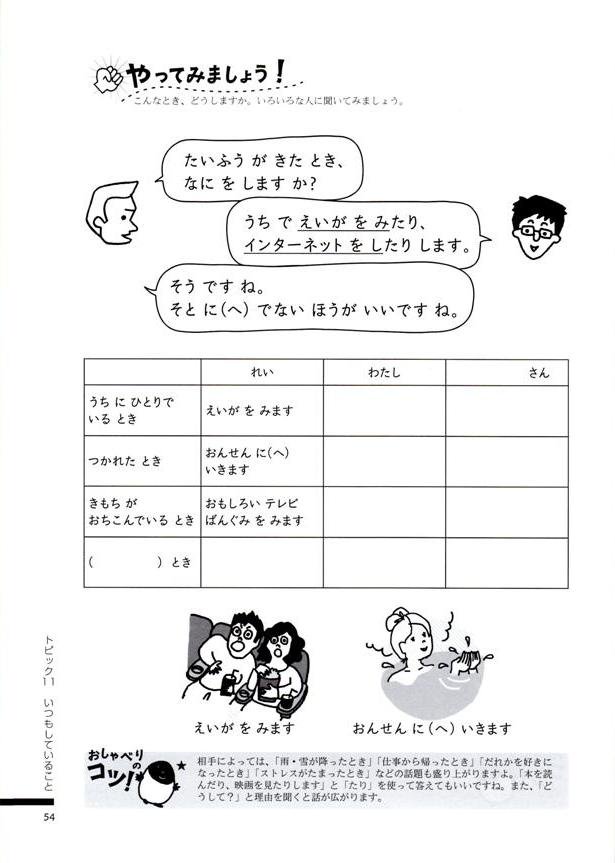 やってみましょう!
こんなとき、どうしますか。いろいろな人に聞いてみましょう。
たいふう が きた とき、
なに を します か?
うち で えいが を みたり、
インターネット を したり します。
そう です ね。
そと に(へ) でない ほうが いいです ね。
れい
わたし
さん
うち に ひとりで
いる とき
えいが を みます
つかれた とき
おんせん に(へ)
いきます
きもち が
おちこんでいる とき
おもしろい テレビ
ばんぐみ を みます
( ) とき
えいが を みます
おんせん に(へ) いきます
おしゃべり
の
コツ!
相手によっては、「雨・雪が降ったとき」「仕事から帰ったとき」「だれかを好きに
なったとき」「ストレスがたまったとき」などの話題も盛り上がりますよ。「本を読
んだり、映画を見たりします」と「たり」を使って答えてもいいですね。また、「ど
うして?」と理由を聞くと話が広がります。
トピック11 いつもしていること
54